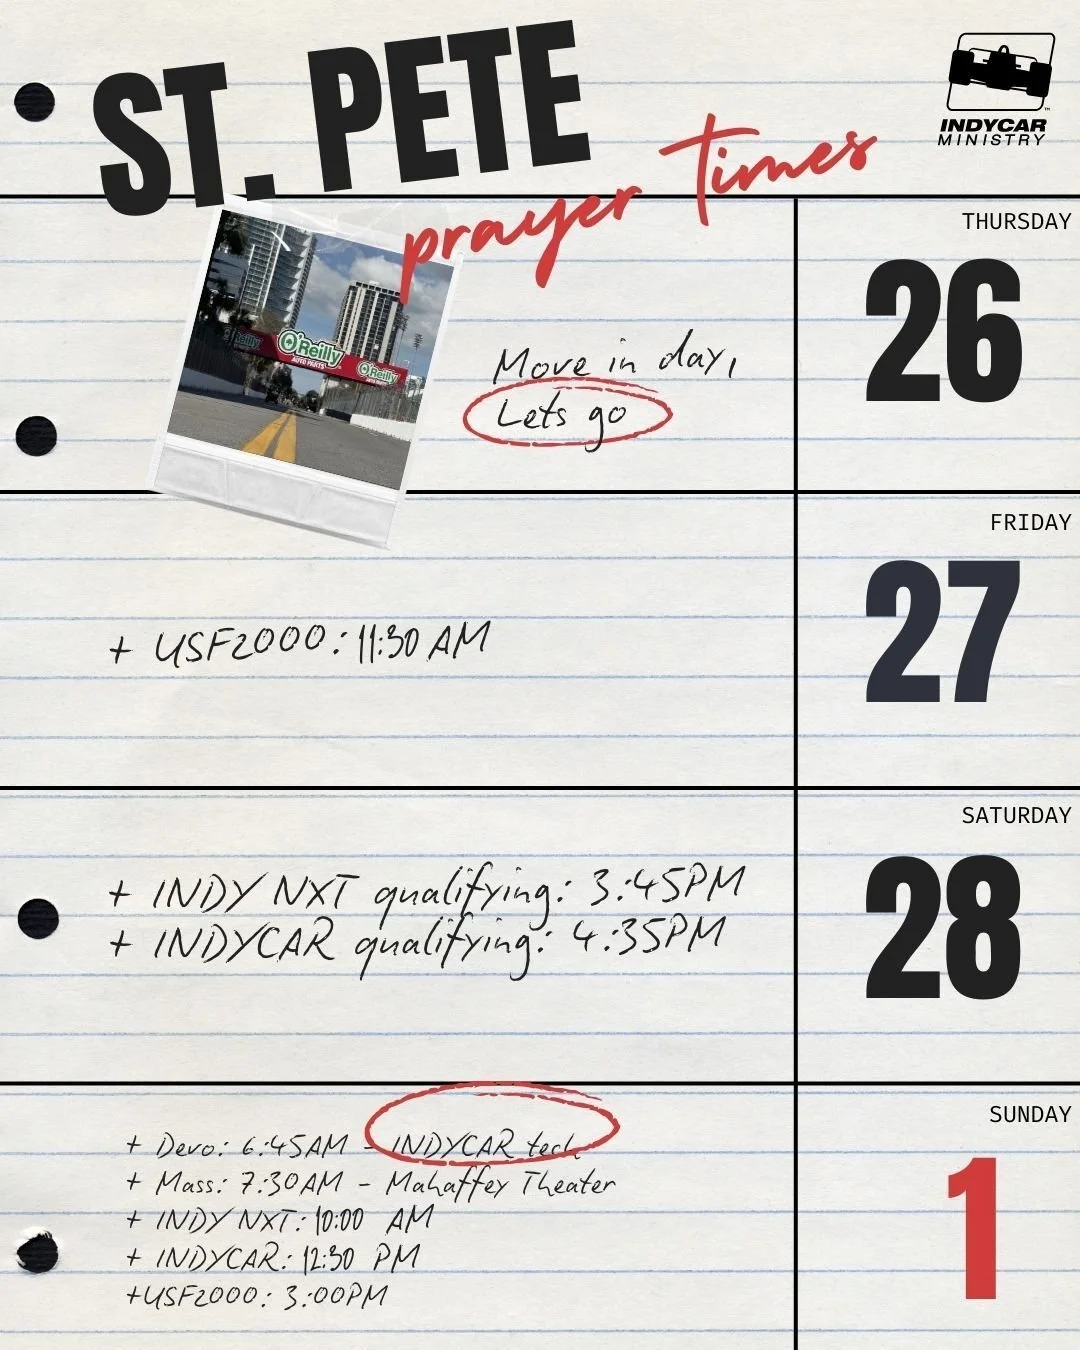 ST. PETE
prayer times
INDYCAR
MINISTRY
THURSDAY
26
O'Reilly
AUTO PARTS
O'Reilly
AUTO PARTS
Move in day,
Lets go
FRIDAY
27
+ USF2000: 11:30 AM
SATURDAY
28
+ INDY NXT qualifying: 3:45PM
+ INDYCAR qualifying: 4:35PM
SUNDAY
1
+ Devo: 6:45AM - INDYCAR tech
+ Mass: 7:30AM - Mahaffey Theater
+ INDY NXT: 10:00 AM
+ INDYCAR: 12:30 PM
+USF2000: 3:00PM